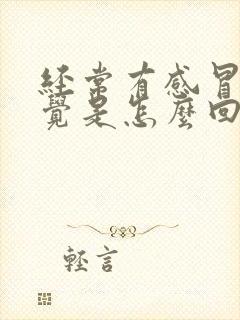 經常有感冒
覺是怎麼回
輕言